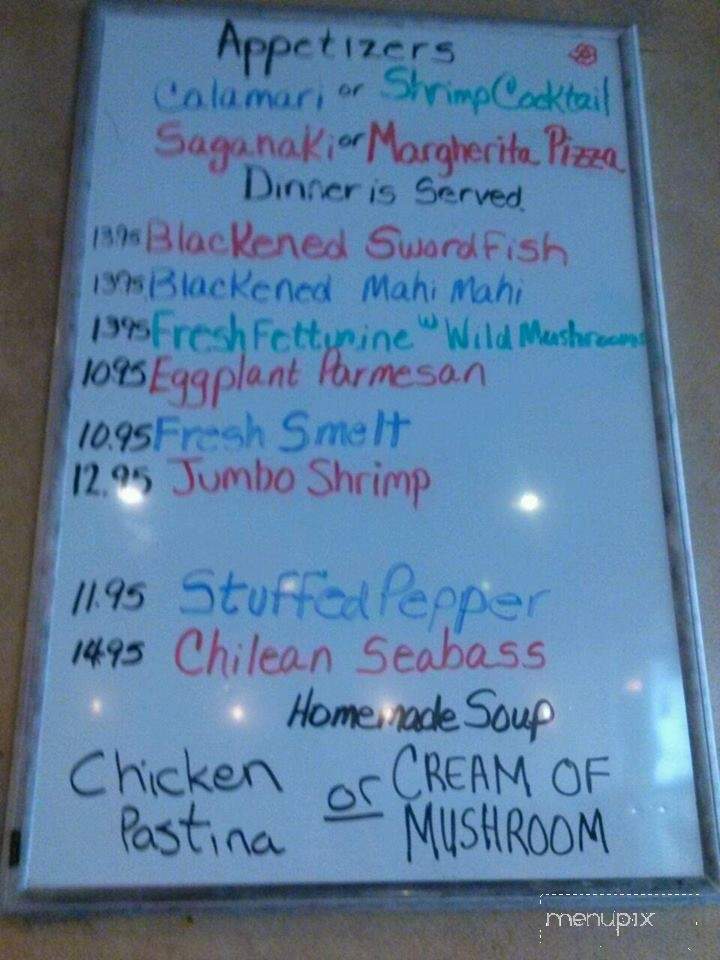 Appetizers
Calamari or Shrimp Cocktail
Saganaki or Margherita Pizza
Dinner is Served
13.95 Blackened Swordfish
13.95 Blackened Mahi Mahi
1395 Fresh Fettunine w Wild Mushrooms
1095 Eggplant Parmesan
10.95 Fresh Smelt
12.95 Jumbo Shrimp
11.95 Stuffed Pepper
1495 Chilean Seabass
Homemade Soup
Chicken Pastina or CREAM OF MUSHROOM
menupix